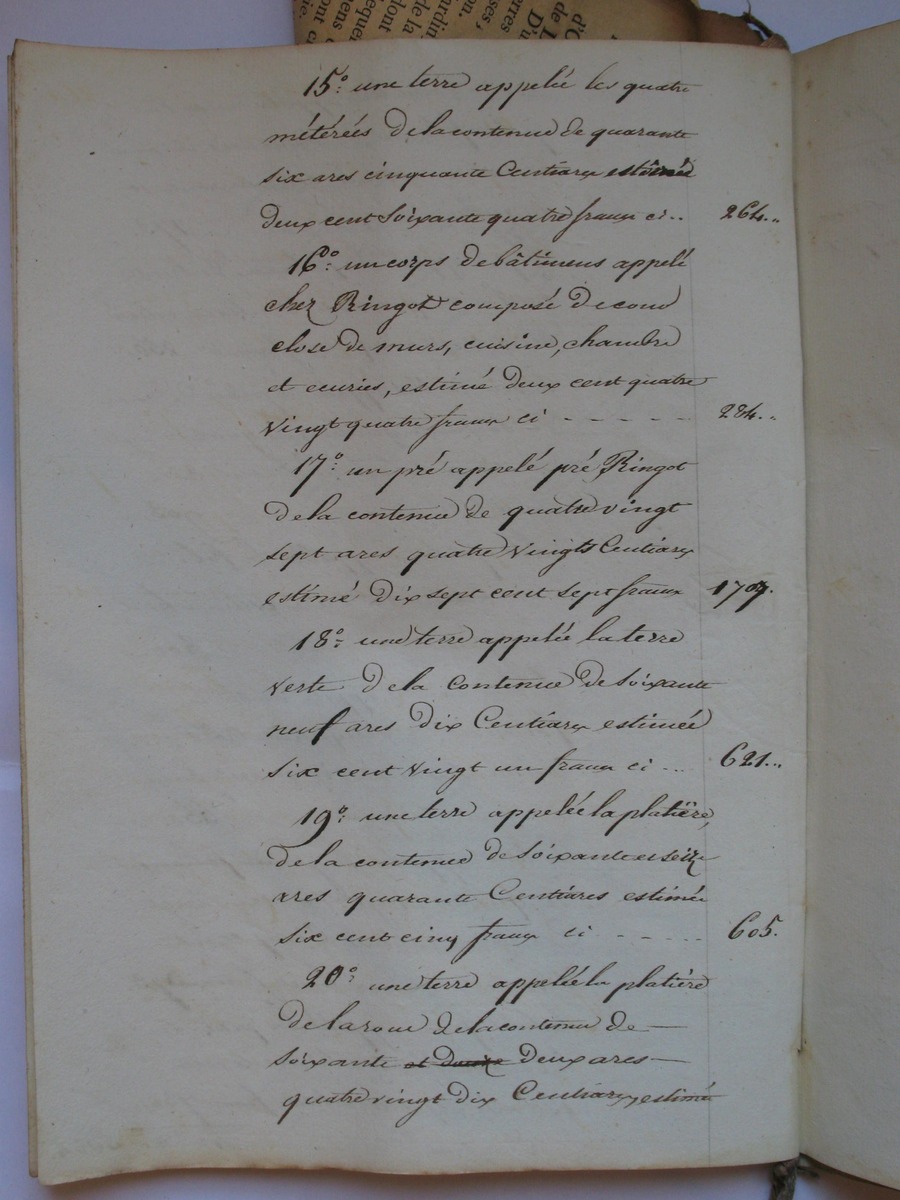 15.° une terre appelée les quatre
métérées de la contenue de quarante
six ares cinquante Centiares estimée
deux cent soixante quatre francs ci .. 264 ..
16.° un corps de bâtimens appelé
chez Ringot composé de cour
close de murs, cuisine, chambre
et ecuries, estimé deux cent quatre
vingt quatre francs ci - - - - - - 284 ..
17.° un pré appelé pré Ringot
de la contenue de quatre vingt
sept ares quatre vingts Centiares
estimé dix sept cent sept francs 1707.
18.° une terre appelée la terre
verte de la contenue de soixante
neuf ares dix Centiares estimée
six cent vingt un francs ci ... 621 ...
19.° une terre appelée la platière,
de la contenue de soixante et seize
ares quarante Centiares estimée
six cent cinq francs ci - - - - - 605.
20.° une terre appelée la platière
de la roue de la contenue de —
soixante et douze deux ares —
quatre vingt dix Centiares, estimée